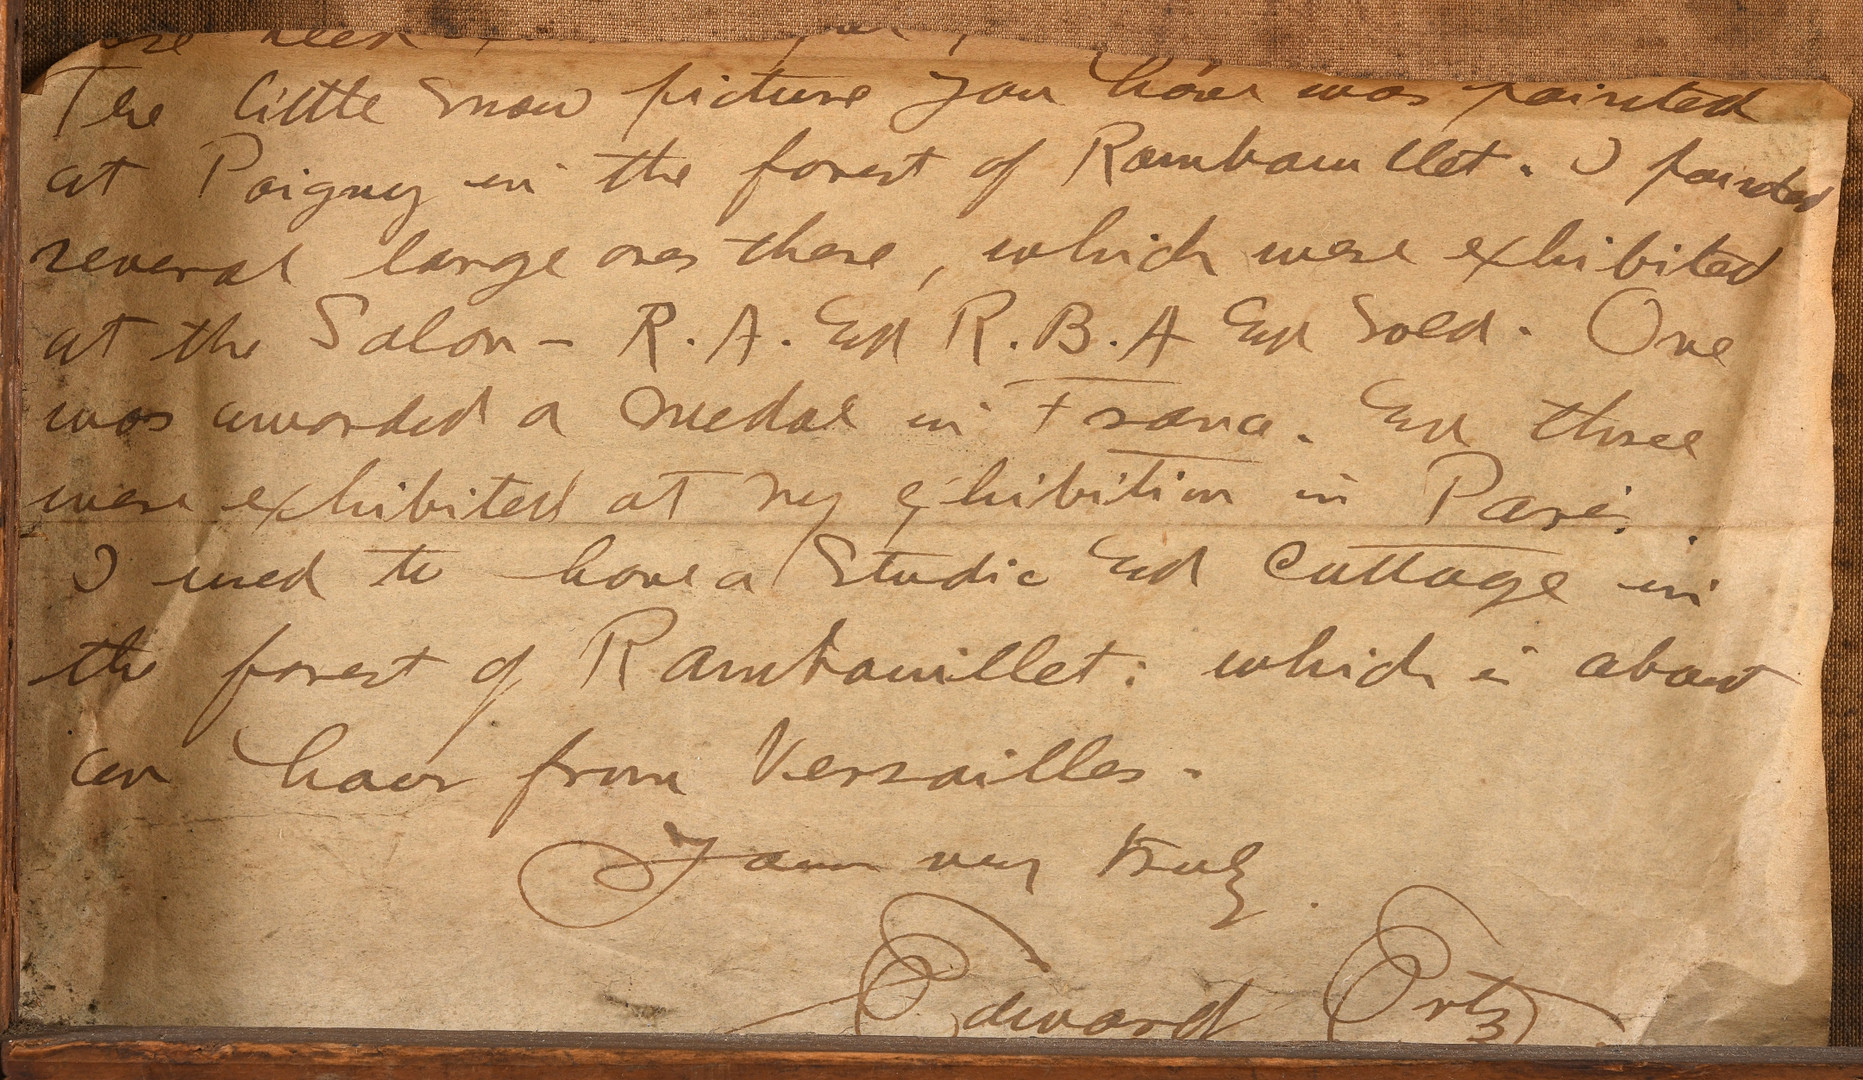 The little snow picture you have was painted
at Poigny in the forest of Rambouillet. I painted
several large ones there, which were exhibited
at the Salon - R.A. and R.B.A and sold. One
was awarded a medal in France. and three
were exhibited at my exhibition in Paris.
I used to have a Studio and Cottage in
the forest of Rambouillet: which is about
an hour from Versailles.
I am very truly
Edward Ertz